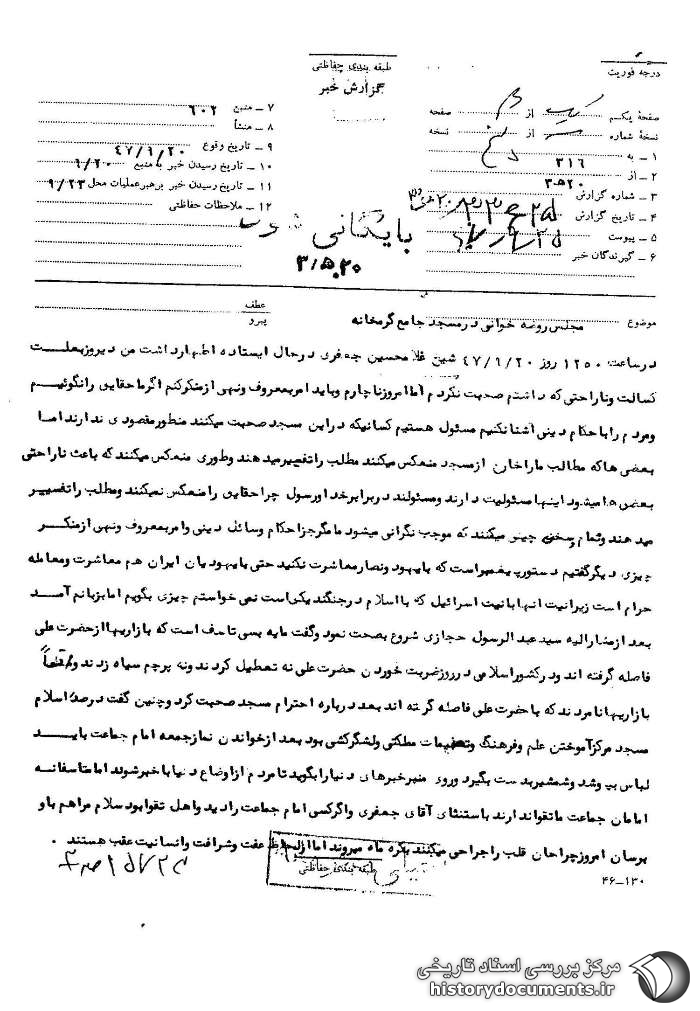 درجه فوریت
طبقه بندی حفاظتی
گزارش خبر
صفحهٔ یکم از صفحه
نسخهٔ شماره از نسخه
۱ ــ به ۳۱۶
۲ ــ از
۳ ــ شماره گزارش
۴ ــ تاریخ گزارش
۵ ــ پیوست
۶ ــ گیرندگان خبر
۷ ــ منبع ۶۰۲
۸ ــ منشأ
۹ ــ تاریخ وقوع ۴۷/۹/۲۰
۱۰ ــ تاریخ رسیدن خبر به منبع ۹/۲۰
۱۱ ــ تاریخ رسیدن خبر برهبر عملیات محل ۹/۲۳
۱۲ ــ ملاحظات حفاظتی
بایگانی شود
۳/۵۲۰
موضوع مجلس روضه خوانی در مسجد جامع گرمخانه
عطف
پیرو
در ساعت ۱۲۵۰ روز ۴۷/۹/۲۰ شیخ غلامحسین جعفری در حال ایستاده اظهار داشت من دیروز بعلت
کسالت و ناراحتی که داشتم صحبت نکردم اما امروز ناچارم و باید امر بمعروف و نهی از منکر کنم اگر ما حقایق را نگوئیم
و مردم را با حکام دینی آشنا نکنیم مسئول هستیم کسانیکه در این مسجد صحبت میکنند منظور مقصودی ندارند اما
بعضی ها که مطالب ما را خارج از مسجد منعکس میکنند مطلب را تفسیر میدهند و طوری منعکس میکنند که باعث ناراحتی
بعضی ها میشود اینها مسئولیت دارند و مسئولند در برابر خدا و رسول چرا حقایق را منعکس نمیکنند و مطلب را تفسیر
میدهند و تمام و سخن چینی میکنند که موجب نگرانی میشود ما مگر جز احکام و مسائل دینی و امر بمعروف و نهی از منکر
چیزی دیگر گفتیم دستور پیغمبر است که با یهود و نصار معاشرت نکنید حتی با یهودیان ایران هم معاشرت و معامله
حرام است زیرا نیت آنها با نیت اسرائیل که با اسلام در جنگند یکی است نمی خواستم چیزی بگویم اما بزبانم آمد
بعد از مشارالیه سید عبدالرسول حجازی شروع بصحبت نمود و گفت مایه بسی تاسف است که بازاریها از حضرت علی
فاصله گرفته اند و در کشور اسلامی در روز ضربت خوردن حضرت علی نه تعطیل کردند و نه پرچم سیاه زدند و واقعاً
بازاریها نامردند که با حضرت علی فاصله گرفته اند بعد درباره احترام مسجد صحبت کرد و چنین گفت در صدر اسلام
مسجد مرکز آموختن علم و فرهنگ و تصمیمات مملکتی و لشگرکشی بود بعد از خواندن نماز جمعه امام جماعت باید
لباس بپوشد و شمشیر بدست بگیرد و روی منبر خبرهای دنیا را بگوید تا مردم از اوضاع دنیا با خبر شوند اما متاسفانه
امامان جماعت ما تقوا ندارند باستثنای آقای جعفری و اگر کسی امام جماعت را دید و اهل تقوا بود سلام مرا هم باو
برسان امروز چراحان قلب را جراحی میکنند بکره ماه میروند اما از لحاظ عفت و شرافت و انسانیت عقب هستند .
طبقه بندی حفاظتی
۴۶ــ۱۳۰
مرکز بررسی اسناد تاریخی
historydocuments.ir